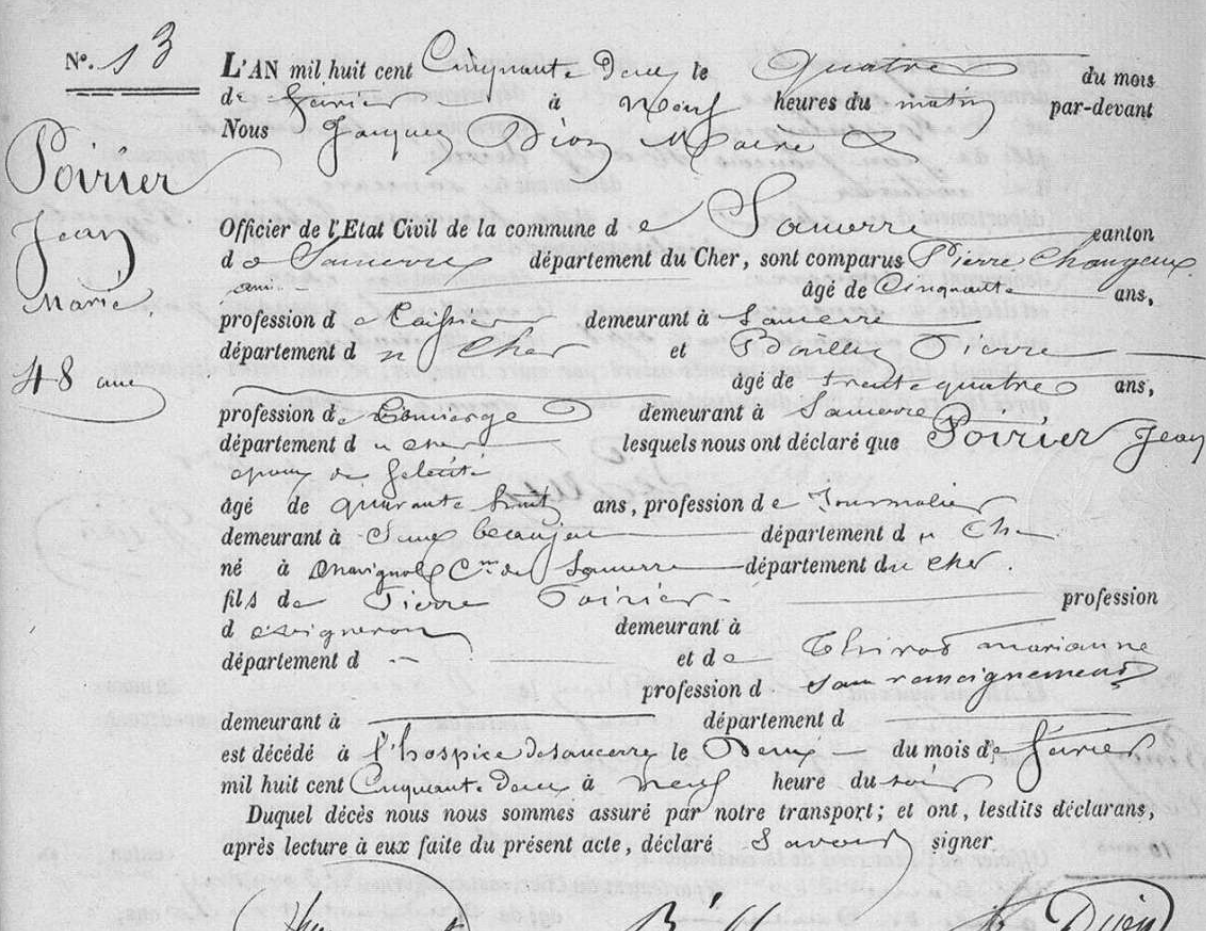 N°. 13
L'AN mil huit cent Cinquante Deux le Quatre du mois
de Fevrier à Neuf heures du matin par-devant
Nous Jacques Dion Maire
Poirier
Jean
Marie
48 ans
Officier de l'Etat Civil de la commune de Sancerre canton
de Sancerre département du Cher, sont comparus Pierre
âgé de Cinquante ans,
profession de demeurant à Sancerre
département du Cher et Bailly Pierre
âgé de trente quatre ans,
profession de Concierge demeurant à Sancerre
département du Cher lesquels nous ont déclaré que Poirier Jean
epoux de
âgé de quarante huit ans, profession de Journalier
demeurant à département du Cher
né à Chavignol Cne de Sancerre département du Cher.
fils de Pierre Poirier profession
de vigneron demeurant à
département d et de Marianne
profession d sans renseignements
demeurant à département d
est décédé à l'hospice de Sancerre le Deux du mois de Fevrier
mil huit cent Cinquante Deux à neuf heure du soir
Duquel décès nous nous sommes assuré par notre transport; et ont, lesdits déclarans,
après lecture à eux faite du présent acte, déclaré Savoir signer
Dion